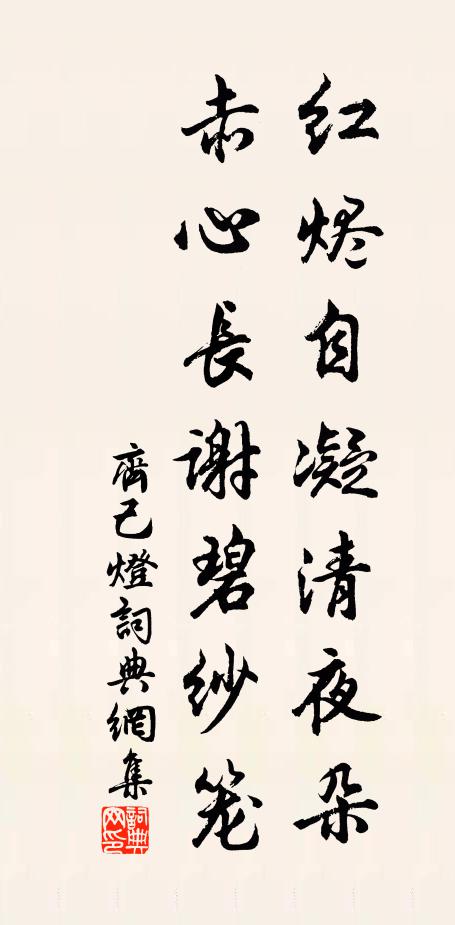 红烬自凝清夜朵
赤心長谢碧纱笼
齊己燈詞典網集
詞典网印